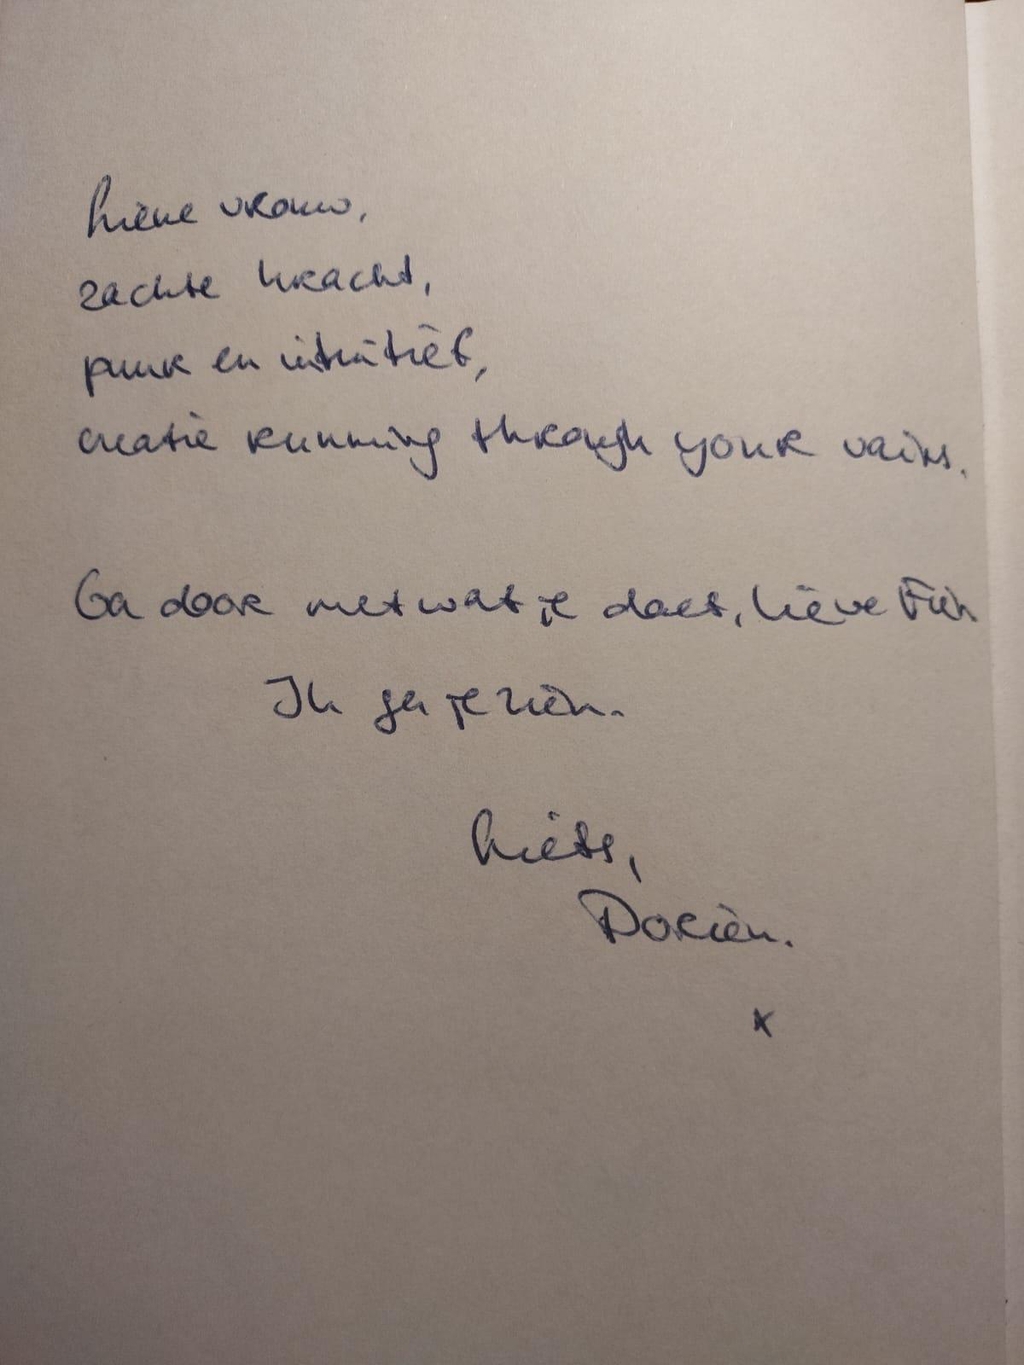 Lieve vrouw,
zachte kracht,
punk en intuïtief,
creatie running through your vains.
Ga door met wat je doet, lieve
Ik ga je zien.
Liefs,
Dorien.
x